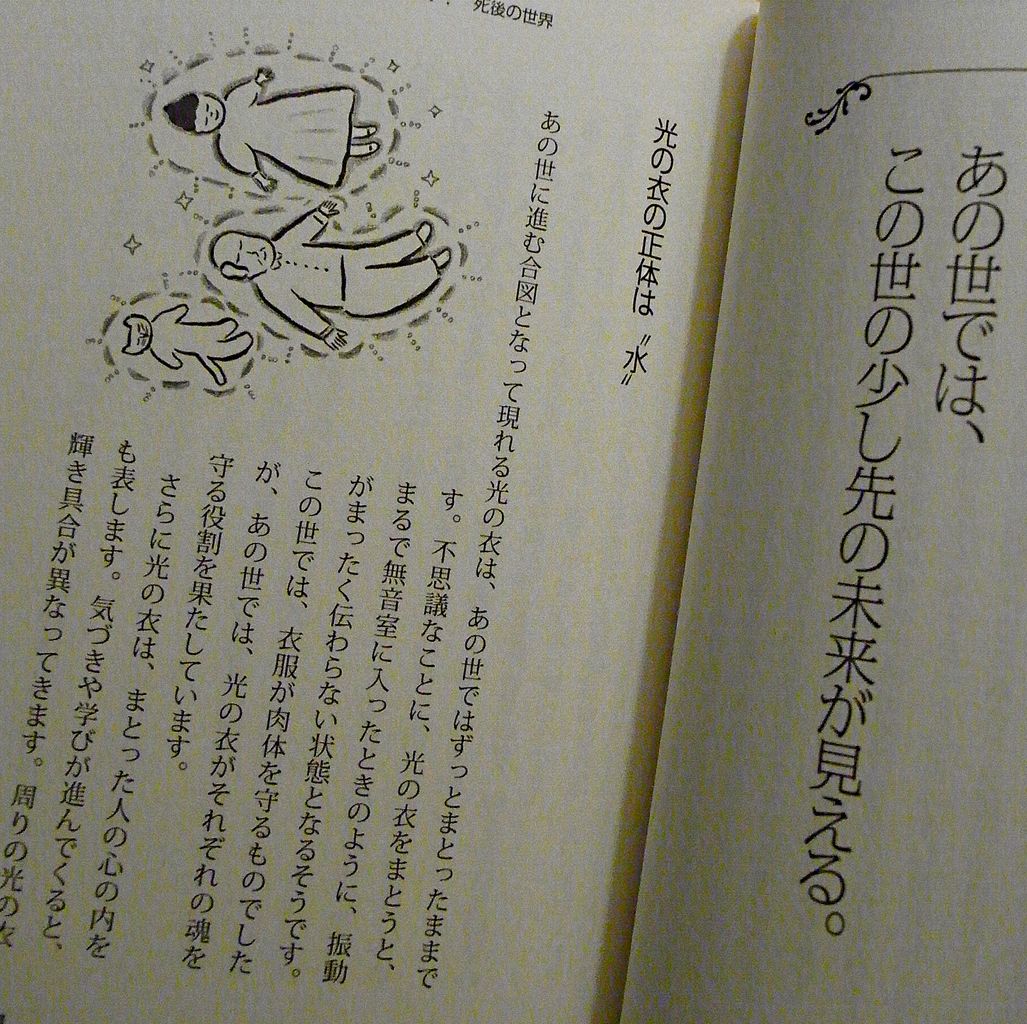 あの世では、
この世の少し先の未来が見える。
死後の世界
光の衣の正体は〝水〟
あの世に進む合図となって現れる光の衣は、あの世ではずっとまとったままで
す。不思議なことに、光の衣をまとうと、
まるで無音室に入ったときのように、振動
がまったく伝わらない状態となるそうです。
この世では、衣服が肉体を守るものでした
が、あの世では、光の衣がそれぞれの魂を
守る役割を果たしています。
さらに光の衣は、まとった人の心の内を
も表します。気づきや学びが進んでくると、
輝き具合が異なってきます。周りの光の衣